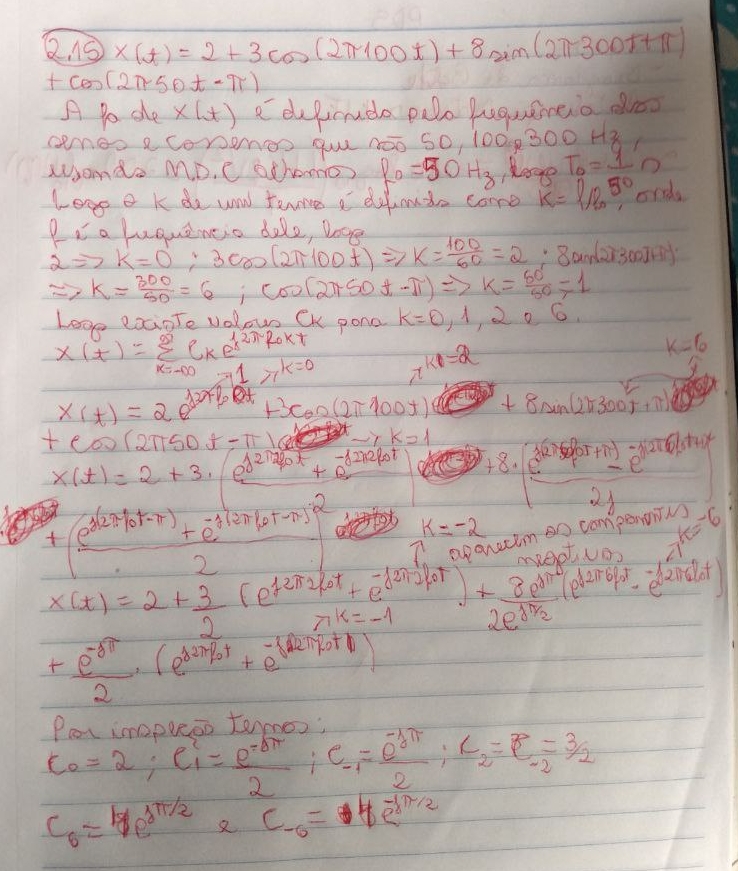 2.15 x(t) = 2 + 3cos(2π100t) + 8sin(2π300t+π)
+ cos(2π50t-π)
A fo de x(t) é definida pela frequência dos
senos e cossenos que são 50, 100 e 300 Hz,
usando M.D.C achamos fo = 50 Hz, logo To = 1/50 s
Logo o K de um termo é definido como K = f/fo, onde
f é a frequência dele, logo
2 => K=0 ; 3cos(2π100t) => K = 100/50 = 2 ; 8sin(2π300t+π)
=> K = 300/50 = 6 ; cos(2π50t-π) => K = 50/50 = 1
Logo existe valores CK para K=0, 1, 2 e 6.
x(t) = ∑ CK e^{j2πfokt}
K=-∞ ∞
K=0 K=2 K=6
x(t) = 2e^{j2πfo0t} + 3cos(2π100t) + 8sin(2π300t+π)
+ cos(2π50t-π) → K=1
x(t) = 2 + 3·(e^{j2π2fot} + e^{-j2π2fot})/2 + 8·(e^{j(2π6fot+π)} - e^{-j(2π6fot+π)})/2j
+ (e^{j(2πfot-π)} + e^{-j(2πfot-π)})/2
K=-2 aparecem os componentes negativos K=-6
x(t) = 2 + 3/2 (e^{j2π2fot} + e^{-j2π2fot}) + 8e^{jπ}/2e^{jπ/2} (e^{j2π6fot} - e^{-j2π6fot})
K=-1
+ e^{-jπ}/2 · (e^{j2πfot} + e^{-j2πfot})
Por inspeção temos:
C0 = 2 ; C1 = e^{-jπ}/2 ; C-1 = e^{-jπ}/2 ; C2 = C-2 = 3/2
C6 = 4e^{jπ/2} e C-6 = 4e^{-jπ/2}